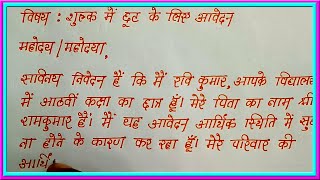 विषय : शुल्क में छूट के लिए आवेदन
महोदय/महोदया,
सविनय निवेदन है कि मैं रवि कुमार, आपके विद्यालय
में आठवीं कक्षा का छात्र हूँ। मेरे पिता का नाम श्री
रामकुमार है। मैं यह आवेदन आर्थिक स्थिति में सु
ना होने के कारण कर रहा हूँ। मेरे परिवार की
आर्थि